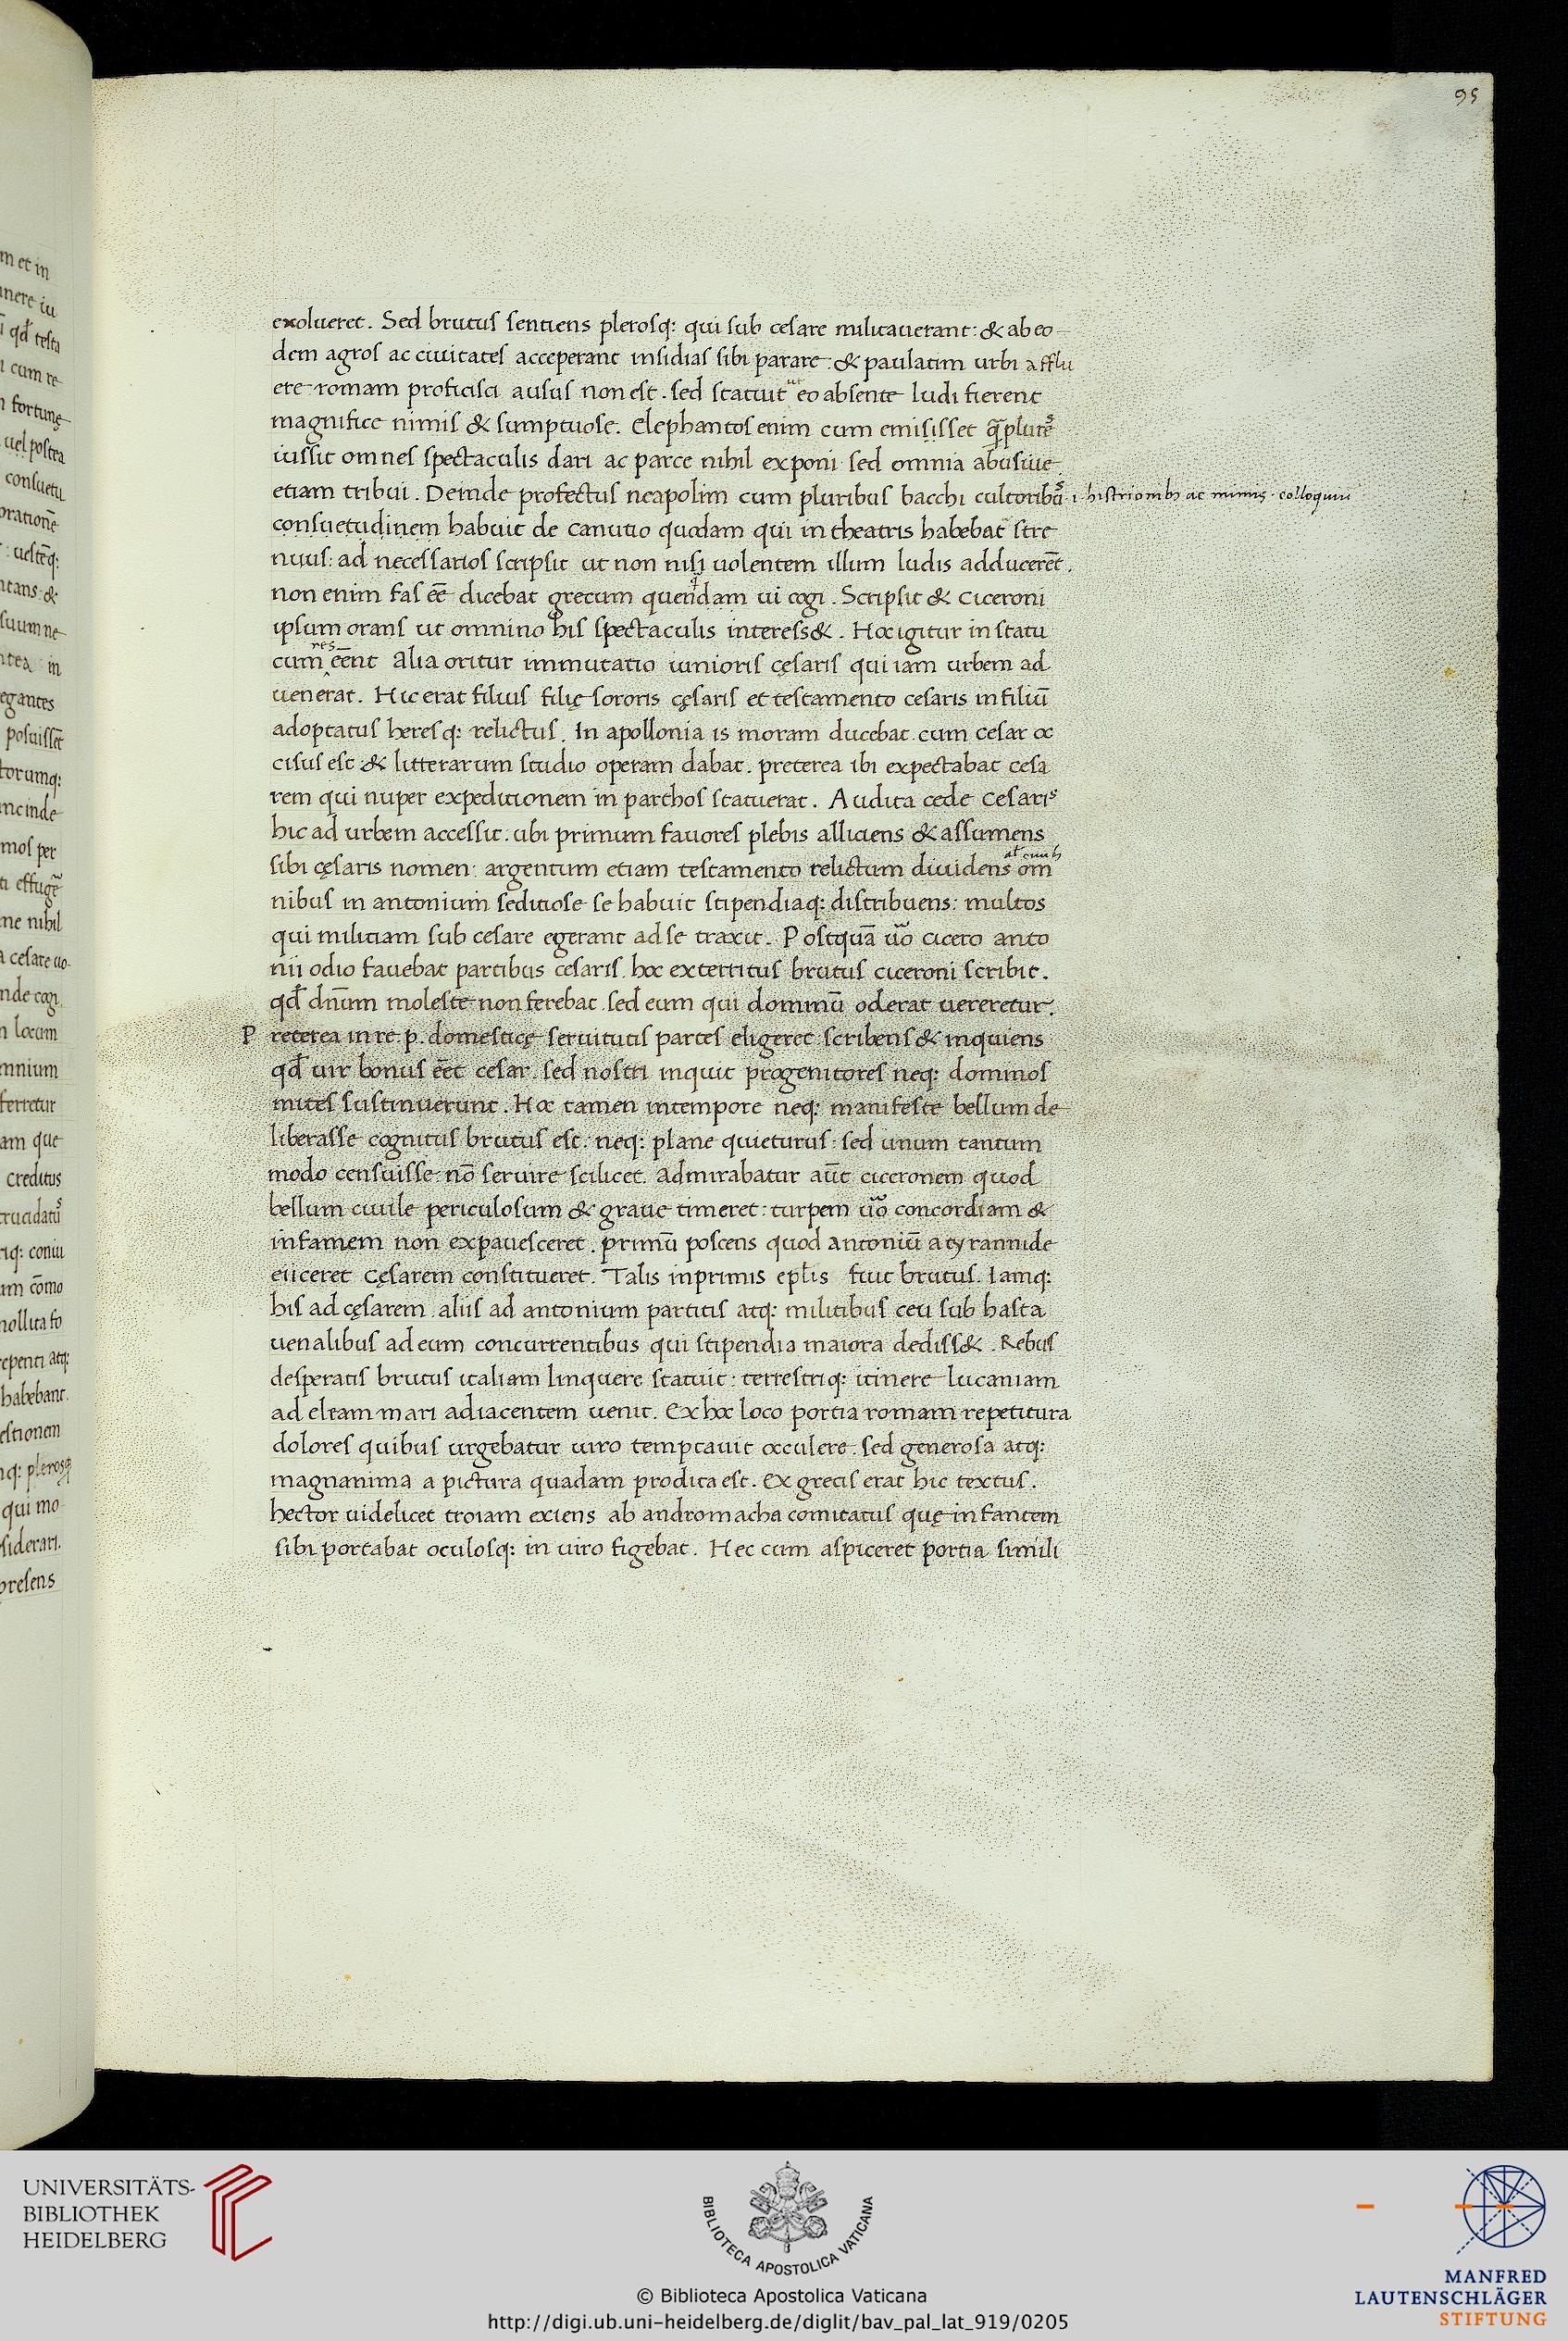 95
exolueret. Sed brutus sentiens plerosq: qui sub cesare militauerant: & ab eo
dem agros ac ciuitates acceperant insidias sibi parare: & paulatim urbi afflu
ere romam proficisci ausus non est. sed statuit ut eo absente ludi fierent
magnifice nimis & sumptuose. Elephantos enim cum emisisset
iussit omnes spectaculis dari ac parce nihil exponi sed omnia abusiue
etiam tribui. Deinde profectus neapolim cum pluribus bacchi cultoribus .i. histrionibꝫ ac mimis. colloquiu
consuetudinem habuit de canutio quodam qui in theatris habebat stre
nuus: ad necessarios scripsit ut non nisi uolentem illum ludis adducerēt.
non enim fas eē dicebat grecum quendam ui cogi. Scripsit & Ciceroni
ipsum orans ut omnino his spectaculis interess&. Hoc igitur in statu
cum res eēnt Alia oritur immutatio iunioris cęsaris qui iam urbem ad
uenerat. Hic erat filius filię sororis cęsaris et testamento cesaris in filiū
adoptatus heresq: relictus. In apollonia is moram ducebat cum cesar oc
cisus est & litterarum studio operam dabat. preterea ibi expectabat cesa
rem qui nuper expeditionem in parthos statuerat. Audita cede cesaris
hic ad urbem accessit. ubi primum fauores plebis alliciens & assumens
sibi cęsaris nomen: argentum etiam testamento relictum diuidens om
nibus in antonium seditiose se habuit stipendiaq: distribuens: multos
qui militiam sub cesare egerant ad se traxit. Postquā uo cicero anto
nii odio fauebat partibus cesaris. hoc exterritus brutus ciceroni scribit.
qd dnūm moleste non ferebat. sed eum qui dominū oderat uereretur.
Preterea in re .p. domesticę seruitutis partes eligeret scribens & inquiens
qd uir bonus eēt cesar. sed nostri inquit progenitores neq: dominos
mites sustinuerunt. Hoc tamen intempore neq: manifeste bellum de
liberasse cognitus brutus est. neq: plane quieturus: sed unum tantum
modo censuisse nō seruire scilicet. Admirabatur aūt ciceronem quod
bellum ciuile periculosum & graue timeret: turpem uo concordiam &
infamem non expauesceret. primū poscens quod antoniū a tyrannide
eiiceret Cęsarem constitueret. Talis inprimis eplis fuit brutus. Iamq:
his ad cęsarem aliis ad antonium partitis atq: militibus ceu sub hasta
uenalibus ad eum concurrentibus qui stipendia maiora dediss&. Rebus
desperatis brutus italiam linquere statuit: terrestriq: itinere lucaniam
ad eleam mari adiacentem uenit. Ex hoc loco portia romam repetitura
dolores quibus urgebatur uiro temptauit occulere. sed generosa atq:
magnanima a pictura quadam prodita est. Ex grecis erat hic textus.
hector uidelicet troiam exiens ab andromacha comitatus quę infantem
sibi portabat oculosq: in uiro figebat. Hec cum aspiceret portia simili
UNIVERSITÄTS-
BIBLIOTHEK
HEIDELBERG
BIBLIOTECA APOSTOLICA VATICANA
© Biblioteca Apostolica Vaticana
http://digi.ub.uni-heidelberg.de/diglit/bav_pal_lat_919/0205
MANFRED
LAUTENSCHLÄGER
STIFTUNG